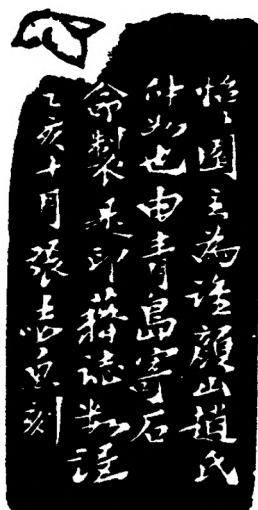 怡〻園主為誰顏山趙氏
仲如也由青島寄石
命製是印藉誌數語
乙亥十月張志魚刻